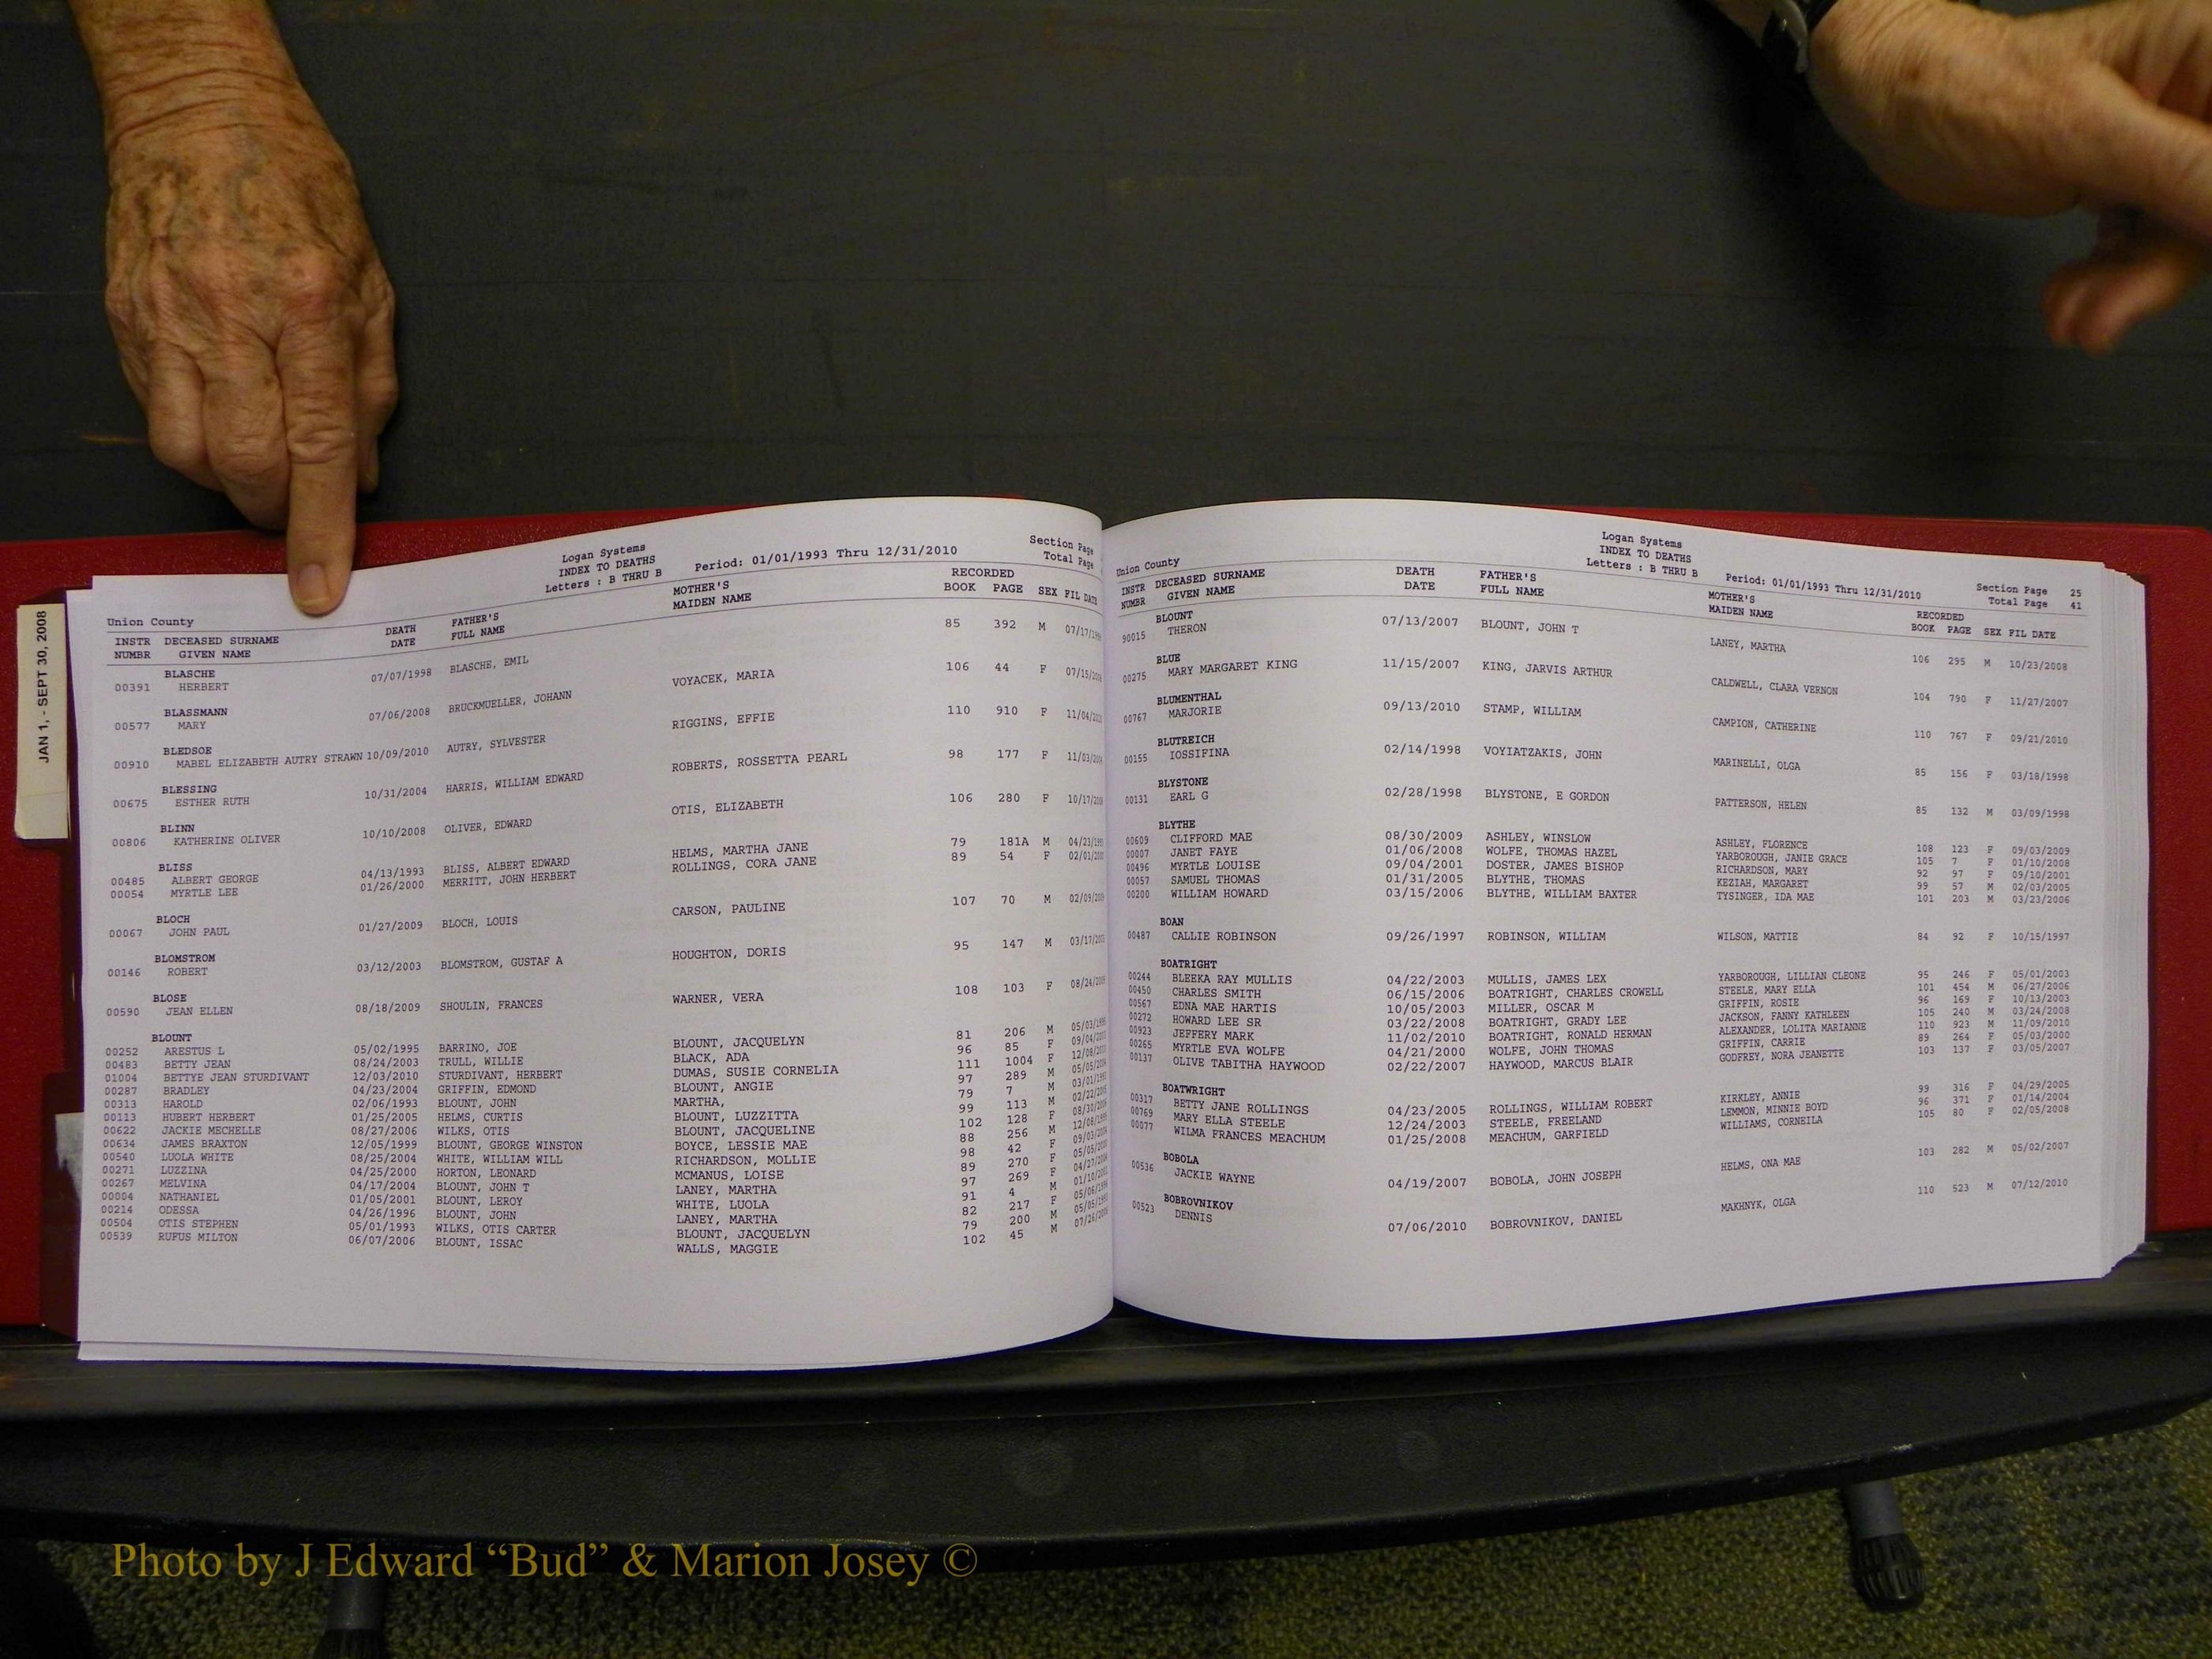 JAN 1, - SEPT 30, 2008
Logan Systems
INDEX TO DEATHS
Letters : B THRU B Period: 01/01/1993 Thru 12/31/2010
Section Page
Total Page
Union County
INSTR DECEASED SURNAME DEATH FATHER'S MOTHER'S RECORDED
NUMBR GIVEN NAME DATE FULL NAME MAIDEN NAME BOOK PAGE SEX FIL DATE
BLASCHE
00391 HERBERT 07/07/1998 BLASCHE, EMIL VOYACEK, MARIA 85 392 M
BLASSMANN
00577 MARY 07/06/2008 BRUCKMUELLER, JOHANN RIGGINS, EFFIE 106 44 F
BLEDSOE
00910 MABEL ELIZABETH AUTRY STRAWN 10/09/2010 AUTRY, SYLVESTER ROBERTS, ROSSETTA PEARL 110 910 F
BLESSING
00675 ESTHER RUTH 10/31/2004 HARRIS, WILLIAM EDWARD OTIS, ELIZABETH 98 177 F
BLINN
00806 KATHERINE OLIVER 10/10/2008 OLIVER, EDWARD 106 280 F
BLISS
00485 ALBERT GEORGE 04/13/1993 BLISS, ALBERT EDWARD HELMS, MARTHA JANE 79 181A M
00054 MYRTLE LEE 01/26/2000 MERRITT, JOHN HERBERT ROLLINGS, CORA JANE 89 54 F
BLOCH
00067 JOHN PAUL 01/27/2009 BLOCH, LOUIS CARSON, PAULINE 107 70 M
BLOMSTROM
00146 ROBERT 03/12/2003 BLOMSTROM, GUSTAF A HOUGHTON, DORIS 95 147 M
BLOSE
00590 JEAN ELLEN 08/18/2009 SHOULIN, FRANCES WARNER, VERA 108 103 F
BLOUNT
00252 ARESTUS L 05/02/1995 BARRINO, JOE BLOUNT, JACQUELYN 81 206 M
00483 BETTY JEAN 08/24/2003 TRULL, WILLIE BLACK, ADA 96 85 F
01004 BETTYE JEAN STURDIVANT 12/03/2010 STURDIVANT, HERBERT DUMAS, SUSIE CORNELIA 111 1004 F
00287 BRADLEY 04/23/2004 GRIFFIN, EDMOND BLOUNT, ANGIE 97 289 M
00313 HAROLD 02/06/1993 BLOUNT, JOHN MARTHA, 79 7 M
00113 HUBERT HERBERT 01/25/2005 HELMS, CURTIS BLOUNT, LUZZITTA 99 113 M
00622 JACKIE MECHELLE 08/27/2006 WILKS, OTIS BLOUNT, JACQUELINE 102 128 F
00634 JAMES BRAXTON 12/05/1999 BLOUNT, GEORGE WINSTON BOYCE, LESSIE MAE 88 256 M
00540 LUOLA WHITE 08/25/2004 WHITE, WILLIAM WILL RICHARDSON, MOLLIE 98 42 F
00271 LUZZINA 04/25/2000 HORTON, LEONARD MCMANUS, LOISE 89 270 F
00267 MELVINA 04/17/2004 BLOUNT, JOHN T LANEY, MARTHA 97 269 F
00004 NATHANIEL 01/05/2001 BLOUNT, LEROY WHITE, LUOLA 91 4 M
00214 ODESSA 04/26/1996 BLOUNT, JOHN LANEY, MARTHA 82 217 F
00504 OTIS STEPHEN 05/01/1993 WILKS, OTIS CARTER BLOUNT, JACQUELYN 79 200 M
00539 RUFUS MILTON 06/07/2006 BLOUNT, ISSAC WALLS, MAGGIE 102 45 M
Logan Systems
INDEX TO DEATHS
Letters : B THRU B Period: 01/01/1993 Thru 12/31/2010
Section Page 25
Total Page 41
Union County
INSTR DECEASED SURNAME DEATH FATHER'S MOTHER'S RECORDED
NUMBR GIVEN NAME DATE FULL NAME MAIDEN NAME BOOK PAGE SEX FIL DATE
BLOUNT
90015 THERON 07/13/2007 BLOUNT, JOHN T LANEY, MARTHA 106 295 M 10/23/2008
BLUE
00275 MARY MARGARET KING 11/15/2007 KING, JARVIS ARTHUR CALDWELL, CLARA VERNON 104 790 F 11/27/2007
BLUMENTHAL
00767 MARJORIE 09/13/2010 STAMP, WILLIAM CAMPION, CATHERINE 110 767 F 09/21/2010
BLUTREICH
00155 IOSSIFINA 02/14/1998 VOYIATZAKIS, JOHN MARINELLI, OLGA 85 156 F 03/18/1998
BLYSTONE
00131 EARL G 02/28/1998 BLYSTONE, E GORDON PATTERSON, HELEN 85 132 M 03/09/1998
BLYTHE
00609 CLIFFORD MAE 08/30/2009 ASHLEY, WINSLOW ASHLEY, FLORENCE 108 123 F 09/03/2009
00007 JANET FAYE 01/06/2008 WOLFE, THOMAS HAZEL YARBOROUGH, JANIE GRACE 105 7 F 01/10/2008
00496 MYRTLE LOUISE 09/04/2001 DOSTER, JAMES BISHOP RICHARDSON, MARY 92 97 F 09/10/2001
00057 SAMUEL THOMAS 01/31/2005 BLYTHE, THOMAS KEZIAH, MARGARET 99 57 M 02/03/2005
00200 WILLIAM HOWARD 03/15/2006 BLYTHE, WILLIAM BAXTER TYSINGER, IDA MAE 101 203 M 03/23/2006
BOAN
00487 CALLIE ROBINSON 09/26/1997 ROBINSON, WILLIAM WILSON, MATTIE 84 92 F 10/15/1997
BOATRIGHT
00244 BLEEKA RAY MULLIS 04/22/2003 MULLIS, JAMES LEX YARBOROUGH, LILLIAN CLEONE 95 246 F 05/01/2003
00450 CHARLES SMITH 06/15/2006 BOATRIGHT, CHARLES CROWELL STEELE, MARY ELLA 101 454 M 06/27/2006
00567 EDNA MAE HARTIS 10/05/2003 MILLER, OSCAR M GRIFFIN, ROSIE 96 169 F 10/13/2003
00272 HOWARD LEE SR 03/22/2008 BOATRIGHT, GRADY LEE JACKSON, FANNY KATHLEEN 105 240 M 03/24/2008
00923 JEFFERY MARK 11/02/2010 BOATRIGHT, RONALD HERMAN ALEXANDER, LOLITA MARIANNE 110 923 M 11/09/2010
00265 MYRTLE EVA WOLFE 04/21/2000 WOLFE, JOHN THOMAS GRIFFIN, CARRIE 89 264 F 05/03/2000
00137 OLIVE TABITHA HAYWOOD 02/22/2007 HAYWOOD, MARCUS BLAIR GODFREY, NORA JEANETTE 103 137 F 03/05/2007
BOATWRIGHT
00317 BETTY JANE ROLLINGS 04/23/2005 ROLLINGS, WILLIAM ROBERT KIRKLEY, ANNIE 99 316 F 04/29/2005
00769 MARY ELLA STEELE 12/24/2003 STEELE, FREELAND LEMMON, MINNIE BOYD 96 371 F 01/14/2004
00077 WILMA FRANCES MEACHUM 01/25/2008 MEACHUM, GARFIELD WILLIAMS, CORNEILA 105 80 F 02/05/2008
BOBOLA
00536 JACKIE WAYNE 04/19/2007 BOBOLA, JOHN JOSEPH HELMS, ONA MAE 103 282 M 05/02/2007
BOBROVNIKOV
00523 DENNIS 07/06/2010 BOBROVNIKOV, DANIEL MAKHNYK, OLGA 110 523 M 07/12/2010
Photo by J Edward “Bud” & Marion Josey ©